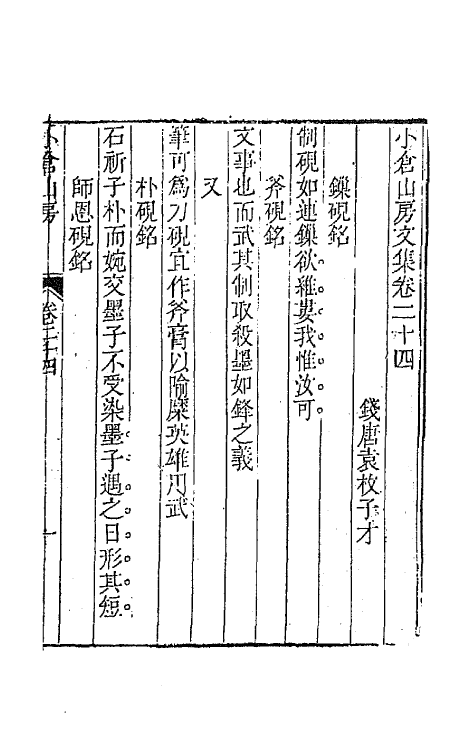 小倉山房文集卷二十四
錢唐袁枚子才
鏁硯銘
制硯如連鏁欲離婁我惟汝可
斧硯銘
文事也而武其制取殺墨如鋒之義
又
筆可爲刀硯宜作斧膏以隃糜英雄用武
朴硯銘
石祈子朴而婉交墨子不受染墨子遇之日形其短
師恩硯銘
小倉山房
卷二十四
一